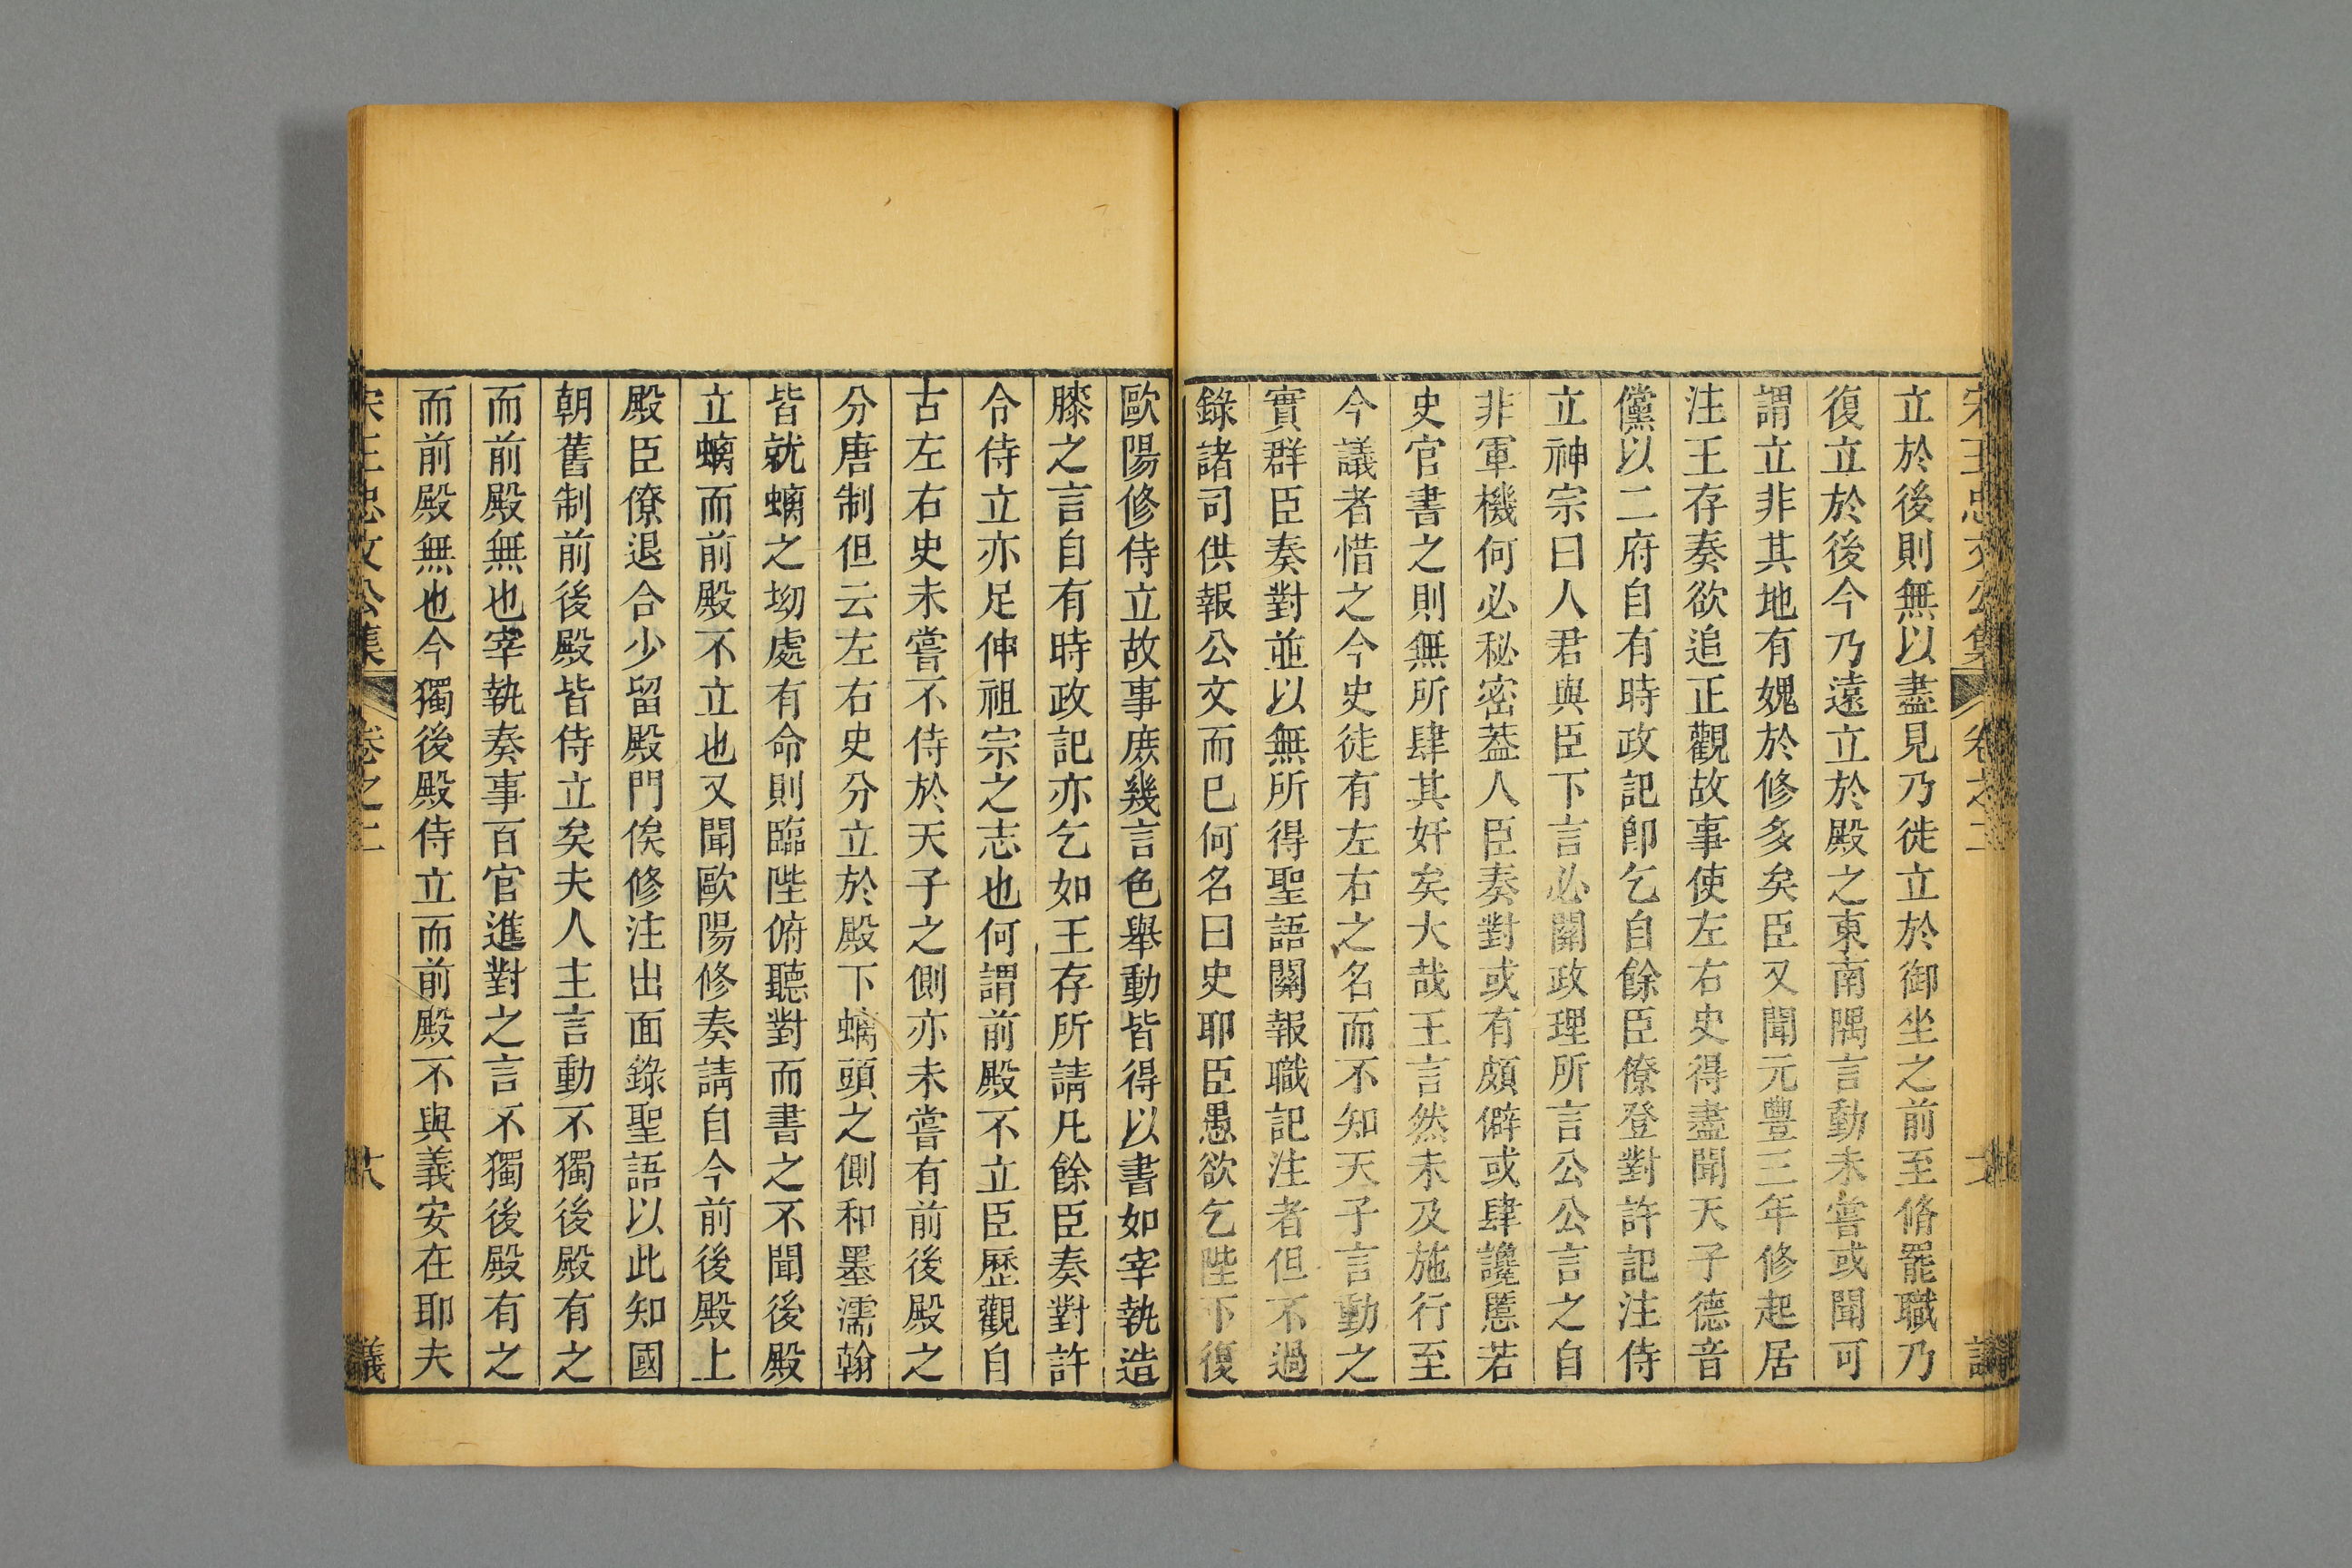 宋王忠文公集 卷之二
立於後則無以盡見乃徙立於御坐之前至脩罷職乃
復立於後今乃遠立於殿之東南隅言動未嘗或聞可
謂立非其地有媿於修多矣臣又聞元豐三年修起居
注王存奏欲追正觀故事使左右史得盡聞天子德音
儻以二府自有時政記即乞自餘臣僚登對許記注侍
立神宗曰人君與臣下言必關政理所言公公言之自
非軍機何必秘密葢人臣奏對或有頗僻或肆讒慝若
史官書之則無所肆其奸矣大哉王言然未及施行至
今議者惜之今史徒有左右之名而不知天子言動之
實群臣奏對並以無所得聖語關報職記注者但不過
錄諸司供報公文而已何名曰史耶臣愚欲乞陛下復
歐陽修侍立故事庶幾言色舉動皆得以書如宰執造
膝之言自有時政記亦乞如王存所請凡餘臣奏對許
令侍立亦足伸祖宗之志也何謂前殿不立臣歷觀自
古左右史未嘗不侍於天子之側亦未嘗有前後殿之
分唐制但云左右史分立於殿下螭頭之側和墨濡翰
皆就螭之坳處有命則臨陛俯聽對而書之不聞後殿
立螭而前殿不立也又聞歐陽修奏請自今前後殿上
殿臣僚退合少留殿門俟修注出面錄聖語以此知國
朝舊制前後殿皆侍立矣夫人主言動不獨後殿有之
而前殿無也宰執奏事百官進對之言不獨後殿有之
而前殿無也今獨後殿侍立而前殿不與義安在耶夫
宋王忠文公集 卷之二 議